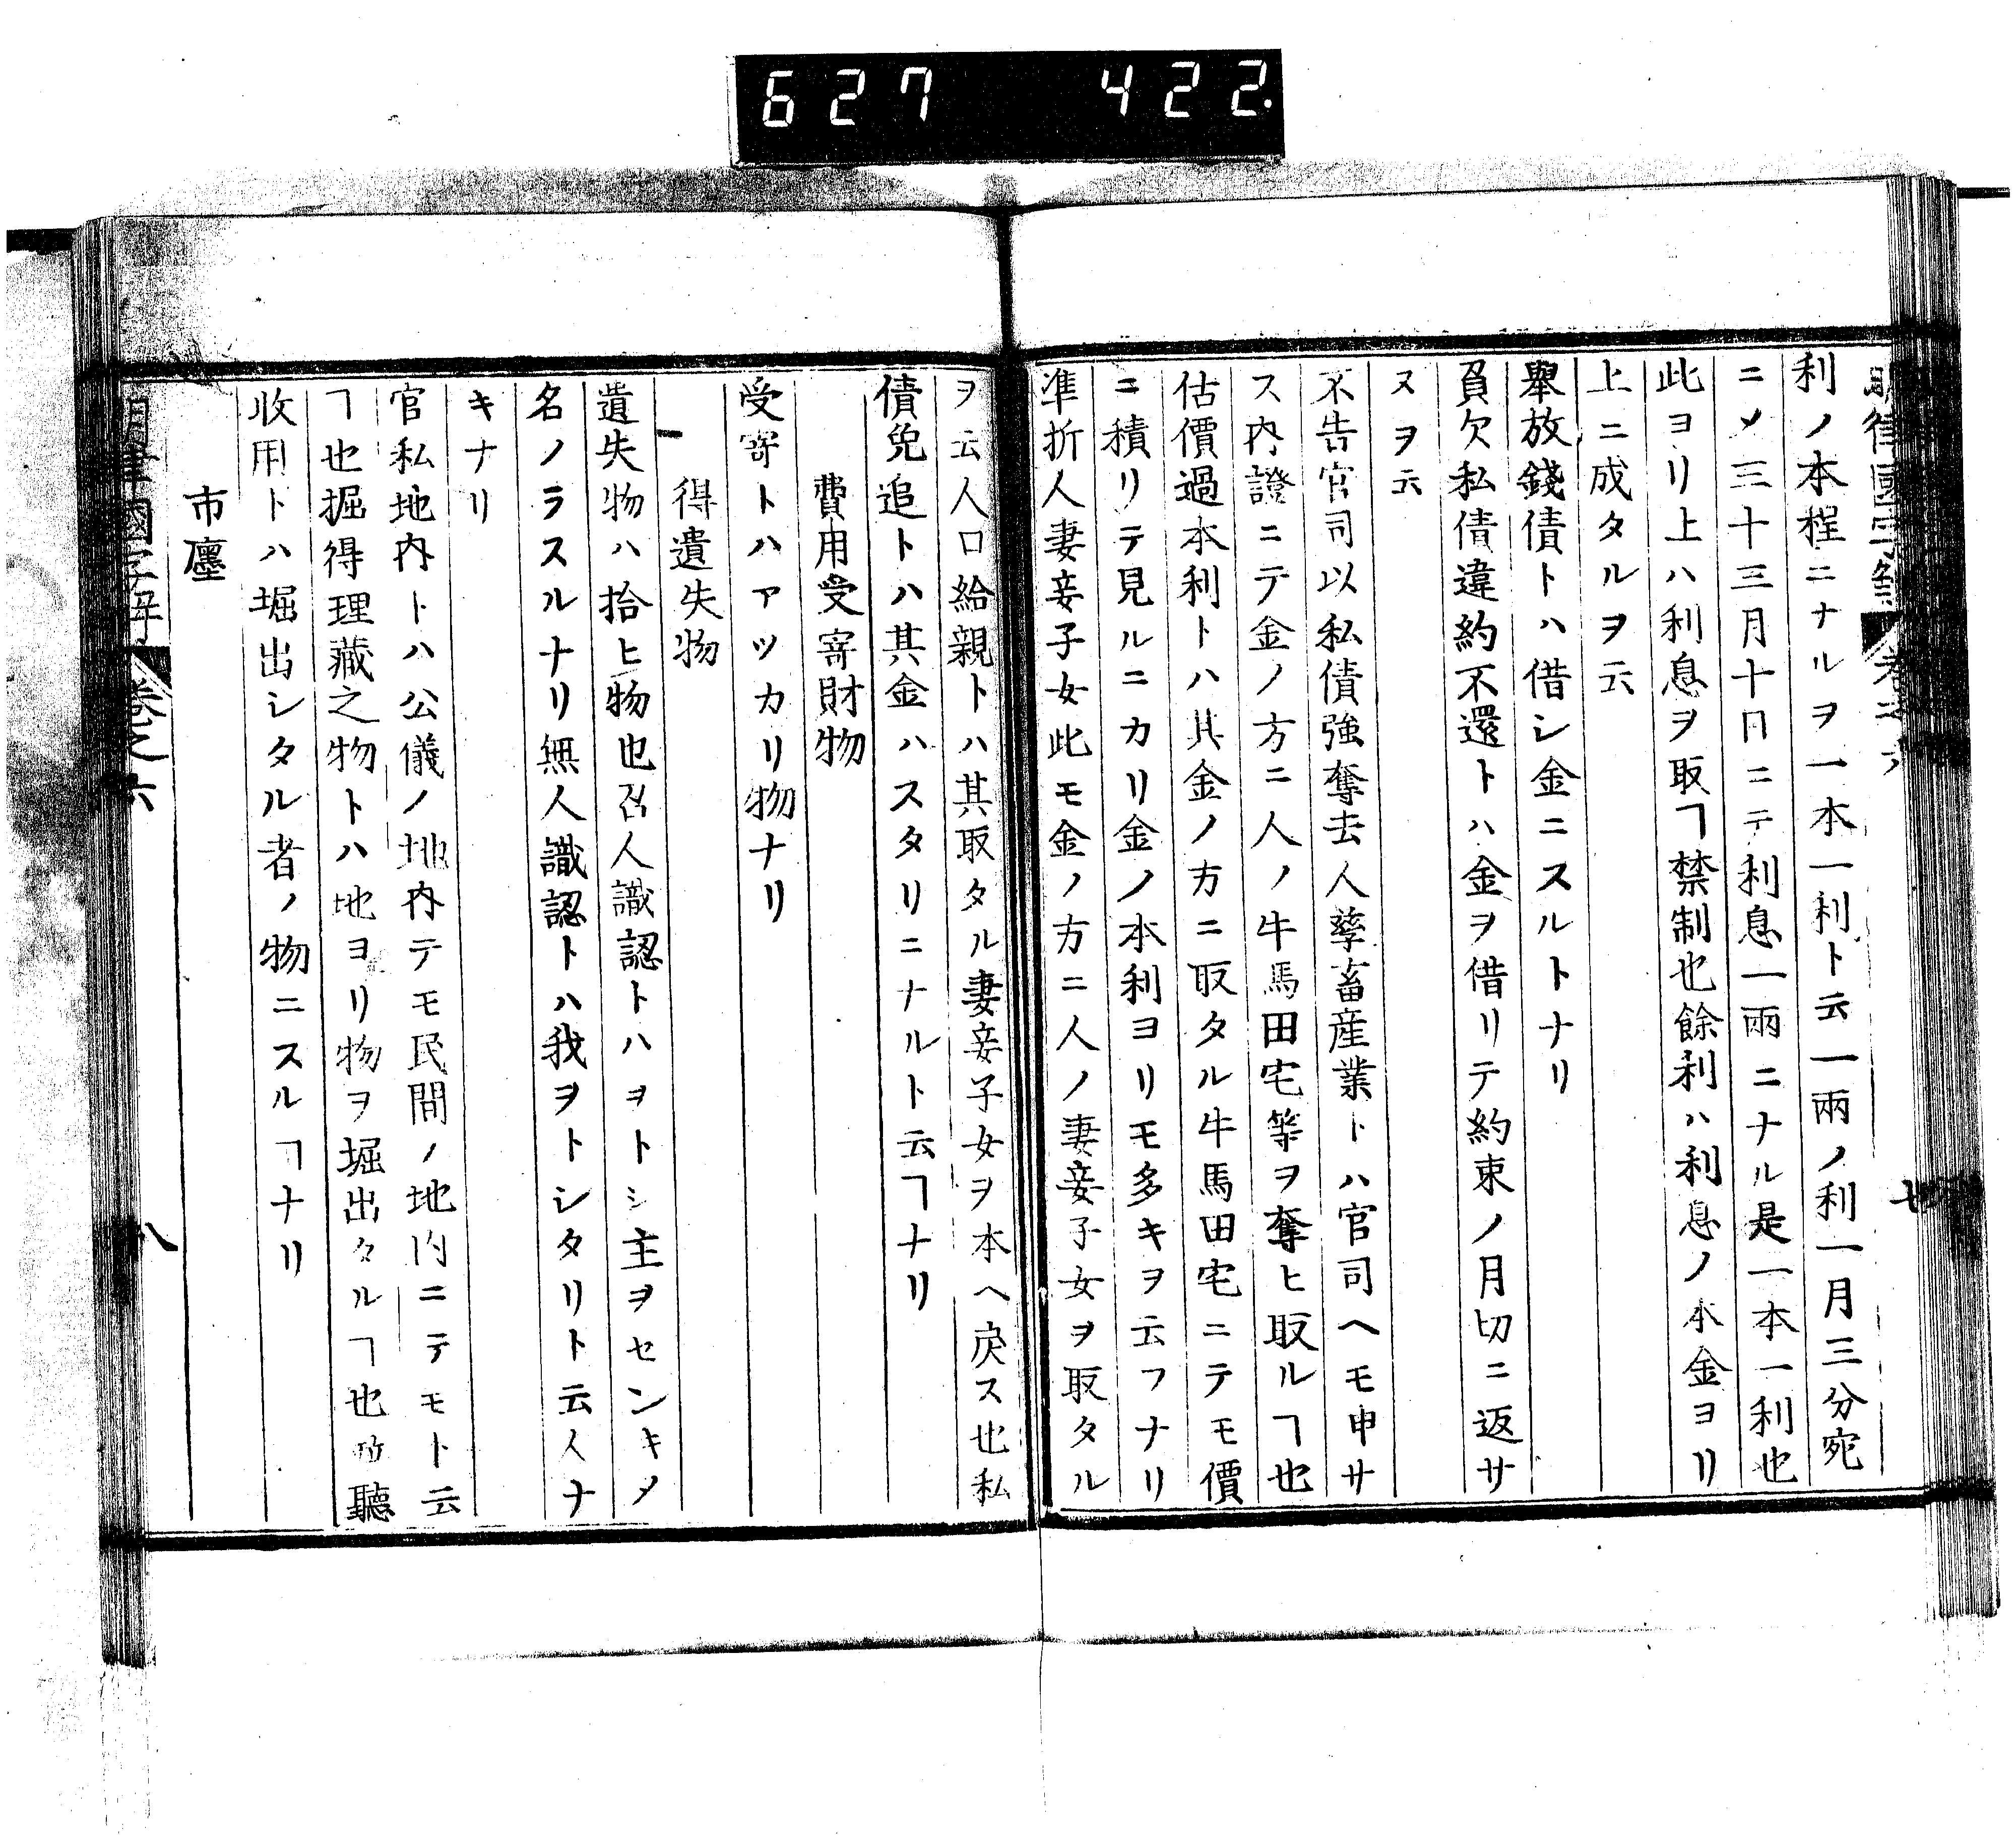 627 422.
利ノ本程ニナルヲ一本一利ト云一兩ノ利一月三分宛
ニメ三十三月十日ニテ利息一兩ニナル是一本一利也
此ヨリ上ハ利息ヲ取ヿ禁制也餘利ハ利息ノ本金ヨリ
上ニ成タルヲ云
舉放錢債トハ借シ金ニスルトナリ
負欠私債違約不還トハ金ヲ借リテ約束ノ月切ニ返サ
ヌヲ云
不告官司以私債強奪去人孳畜産業トハ官司ヘモ申サ
ス内證ニテ金ノ方ニ人ノ牛馬田宅等ヲ奪ヒ取ルヿ也
估價過本利トハ其金ノ方ニ取タル牛馬田宅ニテモ價
ニ積リテ見ルニカリ金ノ本利ヨリモ多キヲ云フナリ
準折人妻妾子女此モ金ノ方ニ人ノ妻妾子女ヲ取タル
ヲ云人口給親トハ其取タル妻妾子女ヲ本ヘ戻ス也私
債免追トハ其金ハスタリニナルト云ヿナリ
費用受寄財物
受寄トハアツカリ物ナリ
得遺失物
遺失物ハ拾ヒ物也召人識認トハヲトシ主ヲセンキメ
名ノラスルナリ無人識認トハ我ヲトシタリト云人ナ
キナリ
官私地内トハ公儀ノ地内テモ民間ノ地内ニテモト云
ヿ也掘得理藏之物トハ地ヨリ物ヲ堀出タルヿ也所聽
收用トハ堀出シタル者ノ物ニスルヿナリ
市廛
明律國字解 卷之六
八